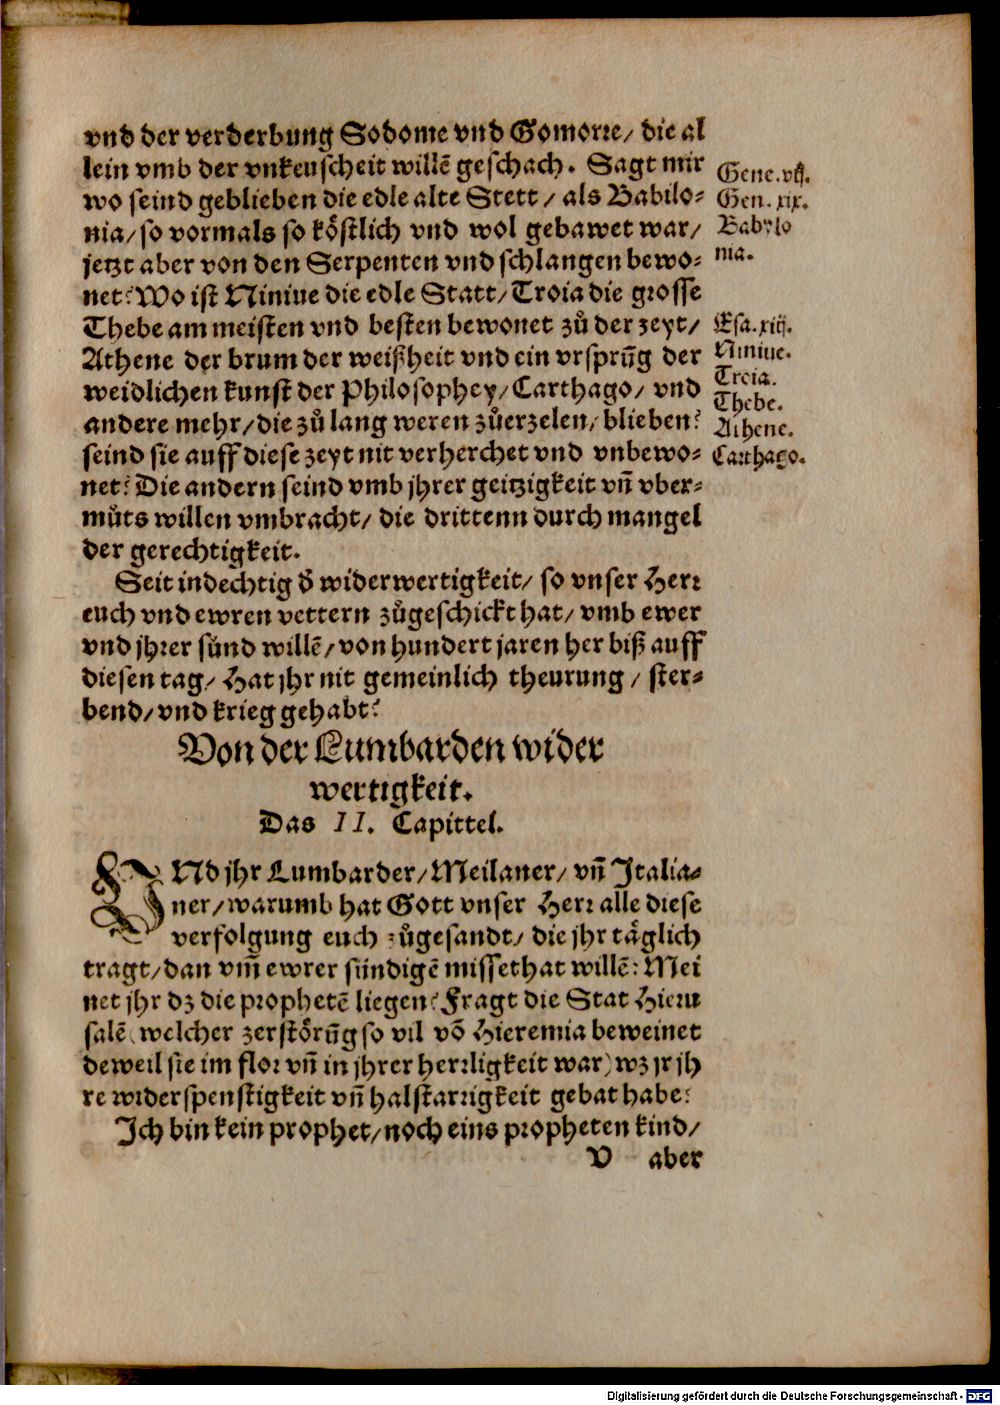 vnd der verderbung Sodome vnd Gomorre/ die al
lein vmb der vnkeuscheit willẽ geschach. Sagt mir
wo seind geblieben die edle alte Stett/ als Babilo⸗
nia/ so vormals so köstlich vnd wol gebawet war/
jetzt aber von den Serpenten vnd schlangen bewo⸗
net? Wo ist Niniue die edle Statt/ Troia die grosse
Thebe am meisten vnd besten bewonet zů der zeyt/
Athene der brum der weißheit vnd ein vrsprũg der
weidlichen kunst der Philosophey/ Carthago/ vnd
andere mehr/ die zů lang weren zůerzelen/ blieben?
seind sie auff diese zeyt nit verherchet vnd vnbewo⸗
net? Die andern seind vmb jhrer geitzigkeit vñ vber⸗
můts willen vmbracht/ die drittenn durch mangel
der gerechtigkeit.
Seit indechtig d̃ widerwertigkeit/ so vnser Herr
euch vnd ewren vettern zůgeschickt hat/ vmb ewer
vnd jhrer sünd willẽ/ von hundert jaren her biß auff
diesen tag/ Hat jhr nit gemeinlich theurung/ ster⸗
bend/ vnd krieg gehabt?
Gene.vij.
Gen.xix.
Babylo
nia.
Esa.xiij.
Niniue.
Troia.
Thebe.
Athene.
Carthago.
Von der Lumbarden wider
wertigkeit.
Das II. Capittel.
VNd jhr Lumbarder/ Meilaner/ vñ Italia⸗
ner/ warumb hat Gott vnser Herr alle diese
verfolgung euch zůgesandt/ die jhr täglich
tragt/ dan vm̃ ewrer sündigẽ missethat willẽ: Mei
net jhr dz die prophetẽ liegen? Fragt die Stat Hieru
salẽ (welcher zerstörũg so vil võ Hieremia beweinet
deweil sie im flor vñ in jhrer herrligkeit war) wz jr jh
re widerspenstigkeit vñ halstarrigkeit gebat habe?
Ich bin kein prophet/ noch eins propheten kind/
V aber
Digitalisierung gefördert durch die Deutsche Forschungsgemeinschaft - DFG